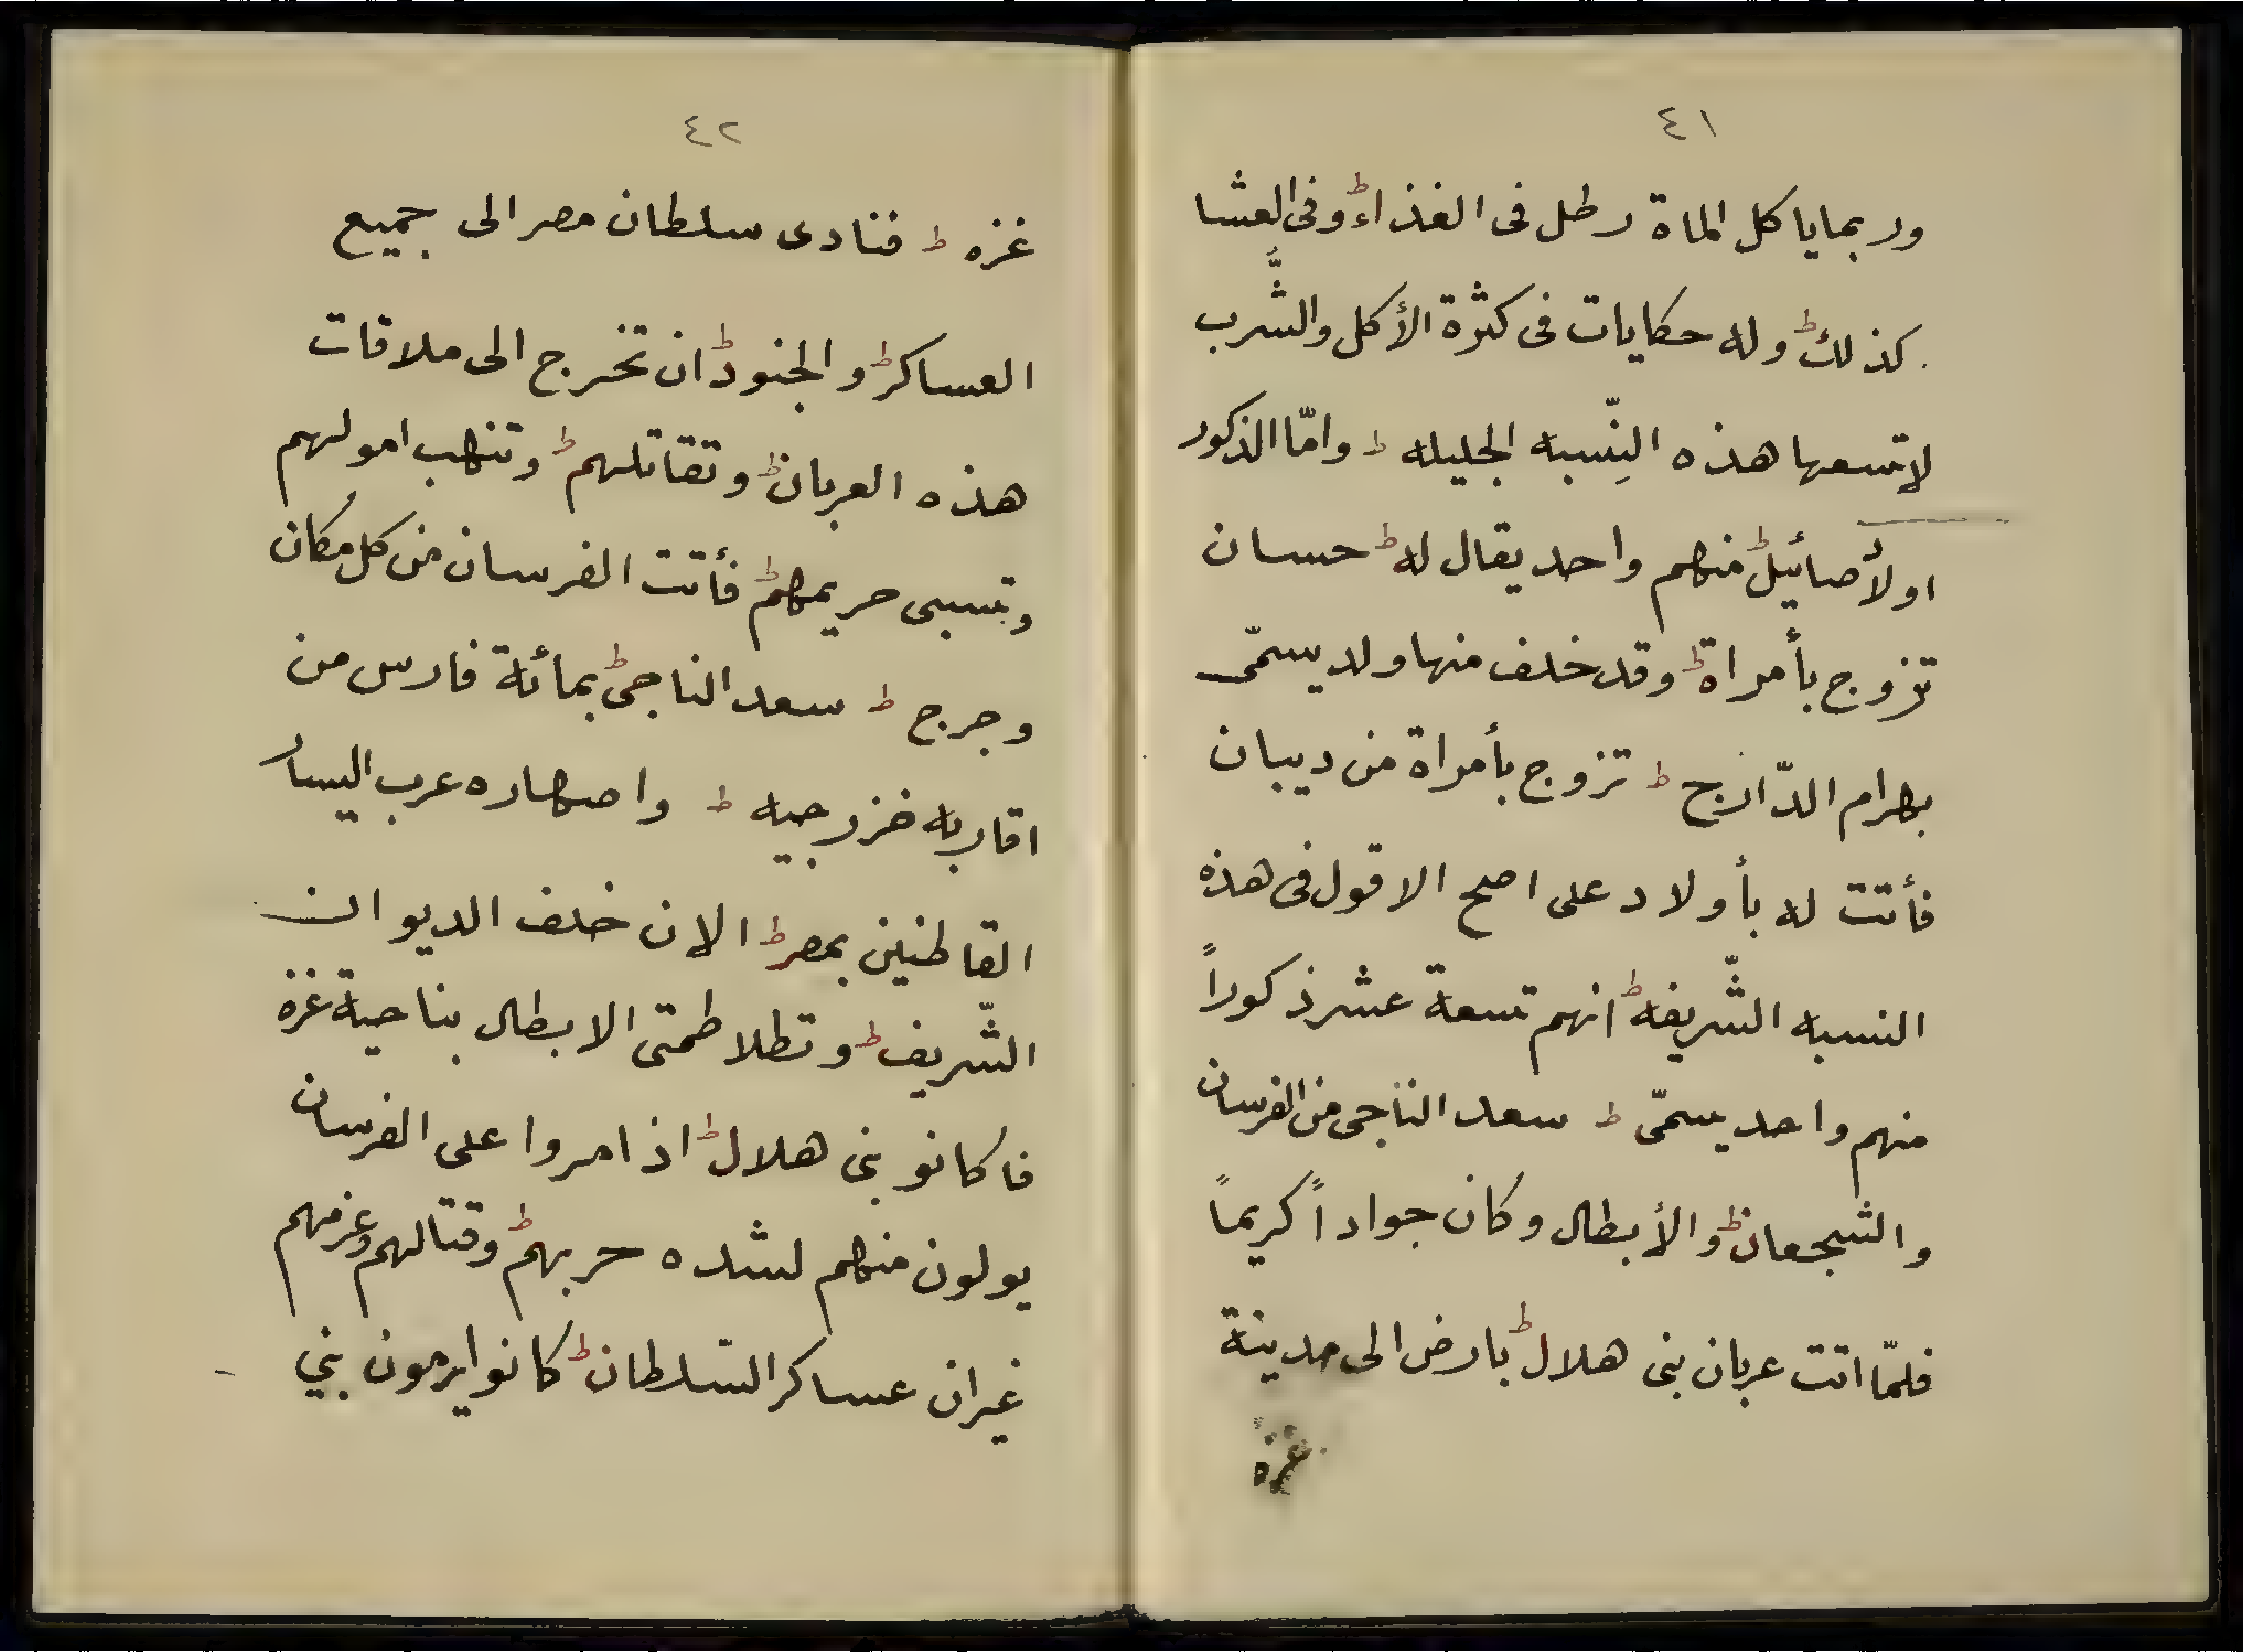 ٤١
وربما ياكل الماة رطل فى الغذاء وفى العشا
كذلك وله حكايات فى كثرة الأكل والشُّرب
لاتسعها هذه النِّسبه الجليله وامّا الذكور
اولأصائيل منهم واحد يقال له حسان
تزوج بأمراة وقد خلف منها ولد يسمّى
بهرام الدّارج تزوج بأمراة من ديبان
فأتت له بأولاد على اصح الاقول فى هذه
النسبه الشّريفه انهم تسعة عشر ذكوراً
منهم واحد يسمّى سعد الناجى من الفرسان
والشجعان والأبطال وكان جواداً كريماً
فلمّا اتت عربان بنى هلال بارض الى مدينة
غزة
٤٢
غزه فنادى سلطان مصر الى جميع
العساكر والجنود ان تخرج الى ملاقات
هذه العربان وتقاتلهم وتنهب امولهم
وتسبى حريمهم فأتت الفرسان من كل مكان
وجرج سعد الناجى بمائة فارس من
اقاربه خزرجيه واصهاره عرب اليسار
القاطنين بمصر الان خلف الديوان
الشّريف وتطلاطمتى الابطال بناحية غزة
فاكانو بنى هلال اذا مروا على الفرسان
يولون منهم لشده حربهم وقتالهم وعزمهم
غيران عساكر السّلطان كانوا يرمون بني